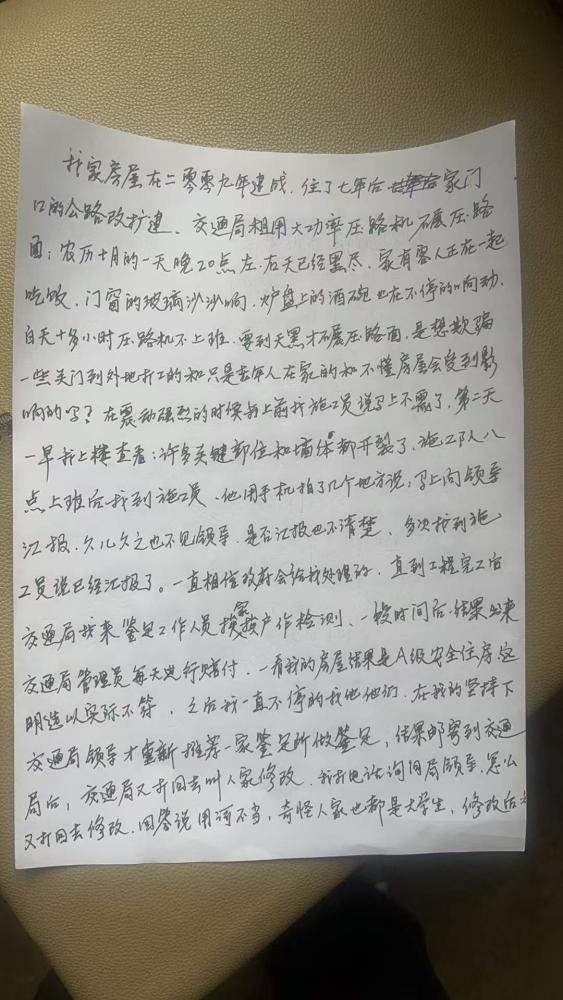 我家房屋在二零零九年建成、住了七年后 家门
口的公路改扩建、交通局租用大功率压路机碾压路
面；农历十月的一天晚20点左右天已经黑尽、家有客人正在一起
吃饭、门窗的玻璃沙沙响、炉盘上的酒碗也在不停的响动、
白天十多小时压路机不上班、要到天黑才碾压路面、是想欺骗
一些关门到外地打工的和只是老年人在家的和不懂房屋会受到影
响的吗？在震动强烈的时候我上前找施工员说马上不震了、第二天
一早我上楼查看：许多关键部位和墙体都开裂了、施工队八
点上班后找到施工员、他用手机拍了几个地方说，马上向领导
汇报、久久之也不见领导、是否汇报也不清楚、多次找到施
工员说已经汇报了。一直相信政府会给我处理的、直到工程完工后
交通局找来鉴定工作人员挨家挨户作检测、一段时间后结果出来
交通局管理员每天进行赔付、一看我的房屋结果是A级安全住房、这
明造以实际不符、之后我一直不停的找他他们、在我的坚持下
交通局领导才重新推荐一家鉴定所做鉴定，结果邮寄到交通
局后，交通局又打回去叫人家修改、我打电话询问局领导、怎么
又打回去修改、回答说用词不当，奇怪人家也都是大学生，修改后